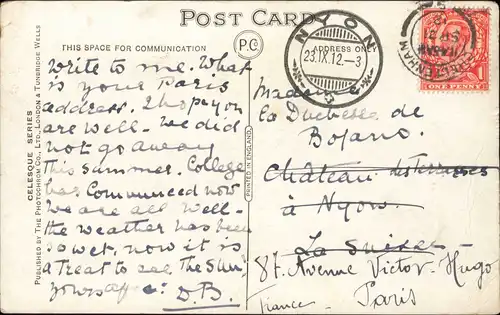 POST CARD
THIS SPACE FOR COMMUNICATION
ADDRESS ONLY
P.C
NYON
23.IX.12-3
CHELTENHAM
ONE PENNY
CELESQUE SERIES
PUBLISHED BY THE PHOTOCHROM CO., LTD., LONDON & TUNBRIDGE WELLS
PRINTED IN ENGLAND
Write to me. What
is your Paris
address. I hope you
are well - we did
not go away
this summer. College
has commenced now
we are all well -
the weather has been
so wet, now it is
a treat to see the Sun,
yours aff
D.B.
Madame
La Duchesse de
Bojano.
Château des Terrasses
à Nyon.
La Suisse
87. Avenue Victor-Hugo
France - Paris